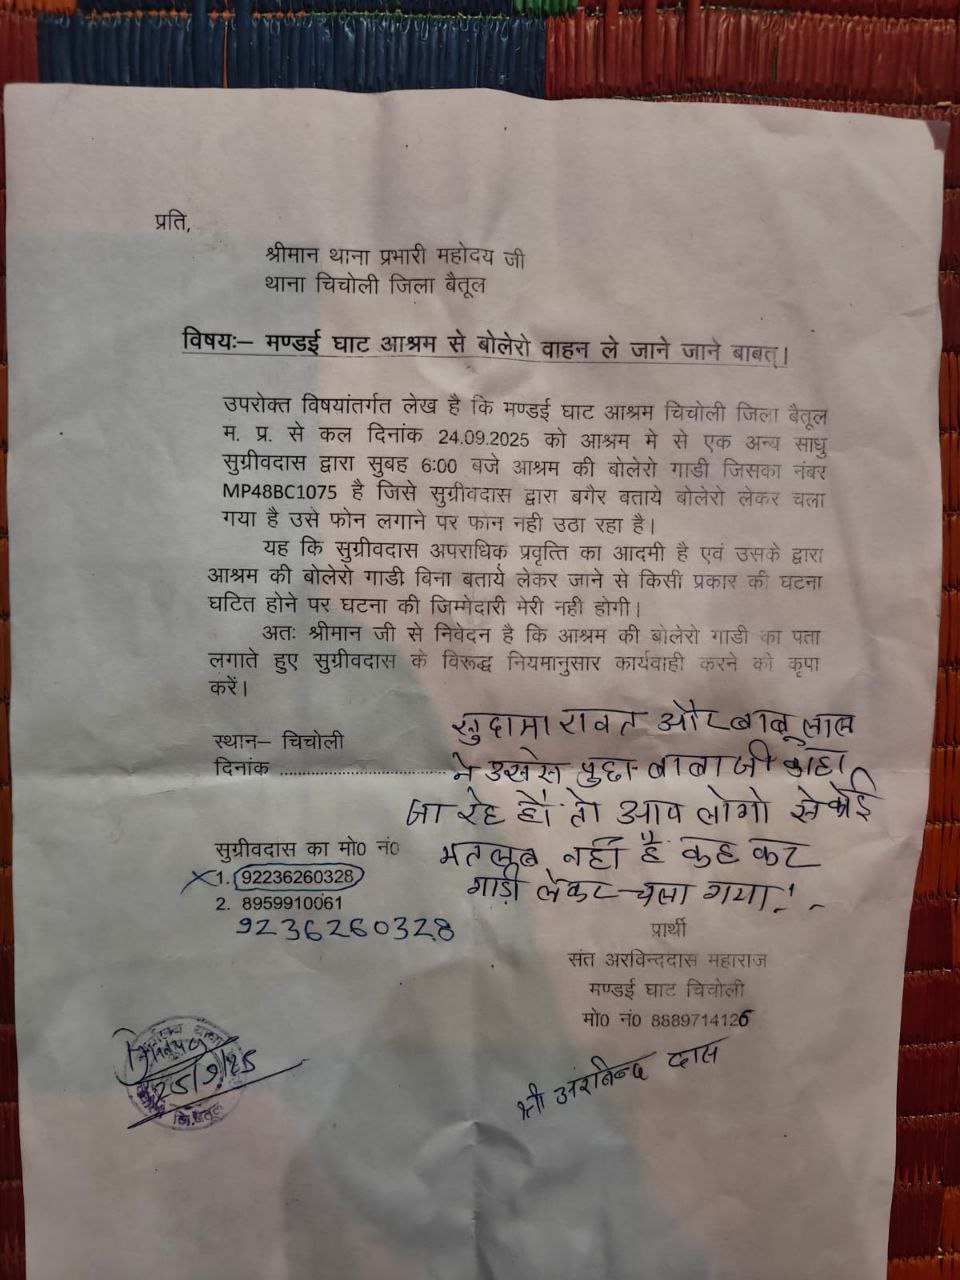 प्रति,
श्रीमान थाना प्रभारी महोदय जी
थाना चिचोली जिला बैतूल
विषयः– मण्डई घाट आश्रम से बोलेरो वाहन ले जाने जाने बाबत्।
उपरोक्त विषयांतर्गत लेख है कि मण्डई घाट आश्रम चिचोली जिला बैतूल
म. प्र. से कल दिनांक 24.09.2025 को आश्रम मे से एक अन्य साधु
सुग्रीवदास द्वारा सुबह 6:00 बजे आश्रम की बोलेरो गाडी जिसका नंबर
MP48BC1075 है जिसे सुग्रीवदास द्वारा बगैर बताये बोलेरो लेकर चला
गया है उसे फोन लगाने पर फोन नही उठा रहा है।
यह कि सुग्रीवदास अपराधिक प्रवृत्ति का आदमी है एवं उसके द्वारा
आश्रम की बोलेरो गाडी बिना बताये लेकर जाने से किसी प्रकार की घटना
घटित होने पर घटना की जिम्मेदारी मेरी नही होगी।
अतः श्रीमान जी से निवेदन है कि आश्रम की बोलेरो गाडी का पता
लगाते हुए सुग्रीवदास के विरूद्ध नियमानुसार कार्यवाही करने की कृपा
करें।
सुदामा रावत और बाबूलाल
स्थान– चिचोली
दिनांक ............................ ने उससे पुछा बाबाजी कहा
जा रहे हौ तो आप लोगो से कोई
सुग्रीवदास का मो0 नं0
मतलब नहीं है कह कर
1. 92236260328
गाड़ी लेकर चला गया!
2. 8959910061
9236260328
प्रार्थी
संत अरविन्ददास महाराज
मण्डई घाट चिचोली
मो0 नं0 8889714126
श्री अरविन्द दास
25/9/25
जि. बैतूल